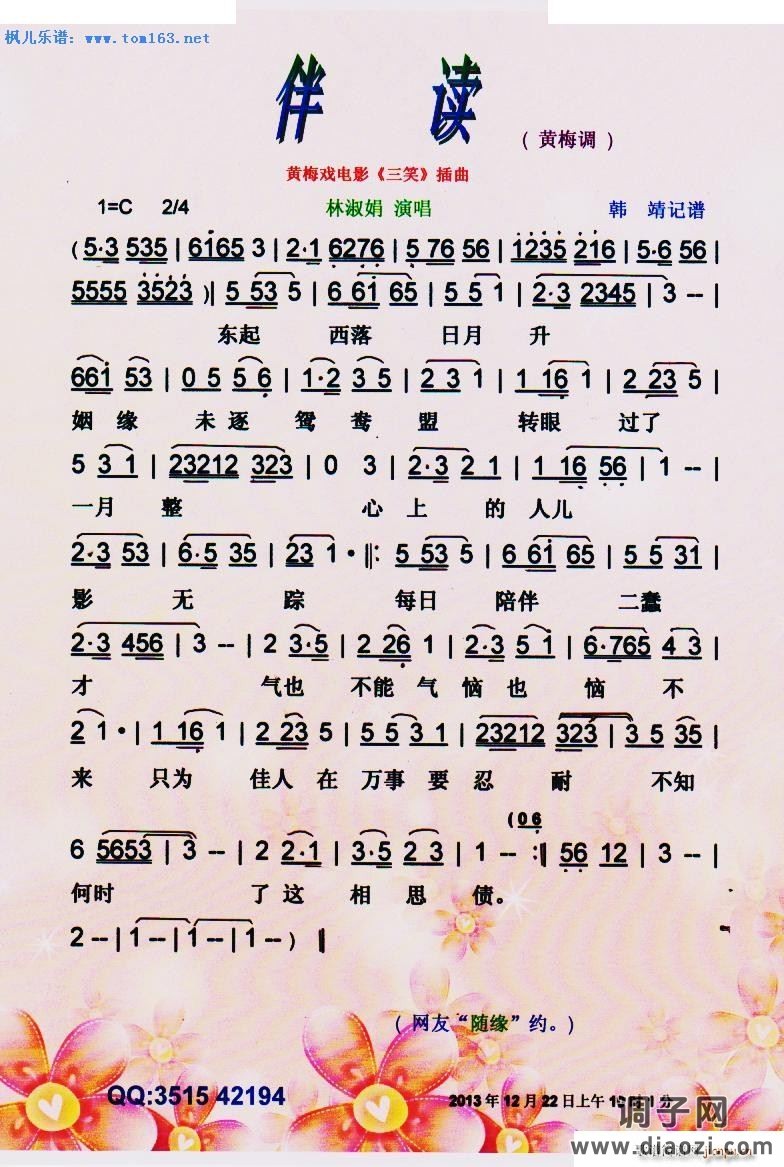 枫儿乐谱：www.tom163.net
伴 读 （黄梅调）
黄梅戏电影《三笑》插曲
1=C 2/4 林淑娟 演唱 韩 靖记谱
(5·3 535 | 6165 3 | 2·1 6276 | 5 76 56 | 1235 216 | 5·6 56 |
5555 3523 )| 5 53 5 | 6 61 65 | 5 5 1 | 2·3 2345 | 3 -- |
东起 西落 日月 升
661 53 | 0 5 5 6 | 1·2 3 5 | 2·3 2 1 | 1 16 1 | 2 23 5 |
姻缘 未逐 鸳鸯 盟 转眼 过了
5 3 1 | 23212 323 | 0 3 | 2·3 2 1 | 1 16 56 | 1 -- |
一月 整 心上 的 人儿
2·3 53 | 6·5 35 | 23 1 · ‖: 5 53 5 | 6 61 65 | 5 5 31 |
影 无 踪 每日 陪伴 二蠢
2·3 456 | 3 -- | 2 3·5 | 2 26 1 | 2·3 5 1 | 6·765 4 3 |
才 气也 不能 气 恼也 恼 不
2 1· | 1 16 1 | 2 23 5 | 5 5 3 1 | 23212 323 | 3 5 35 |
来 只为 佳人 在 万事 要 忍 耐 不知
(0 6
6 5653 | 3 -- | 2 2·1 | 3·5 2 3 | 2 -- :‖ 56 12 | 3 -- |
何时 了这 相思 债。
2 -- | 1 -- | 1 -- | 1 -- ) ‖
（网友“随缘”约。）
QQ:3515 42194
2013年12月22日上午
调子网
www.diaozi.net